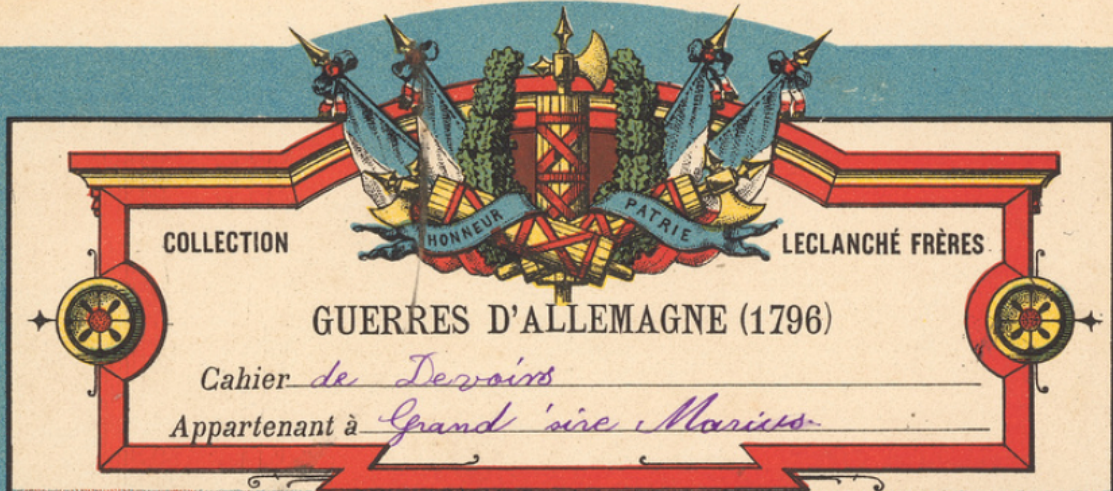 HONNEUR PATRIE
COLLECTION LECLANCHÉ FRÈRES
GUERRES D'ALLEMAGNE (1796)
Cahier de Devoirs
Appartenant à Grand'sire Marius